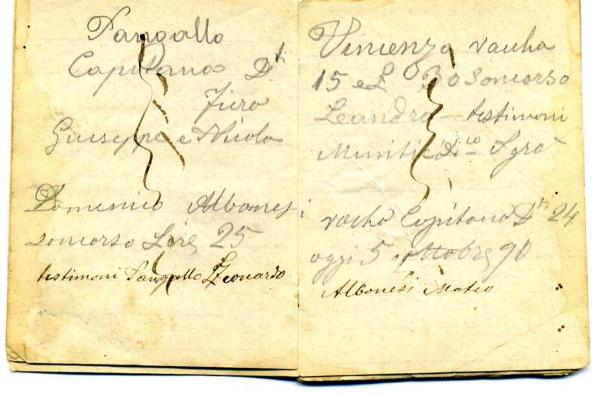 Pangallo
Capitano Dti
Fiero
Giuseppe e Nicola
Domenico Albanesi
soncorso Lire 25
testimoni Pangallo Leonardo
Vincenzo vacha
15 e L 30 soncorso
Leandro testimoni
Dico
vacha Capitano Dti 24
oggi 5 ottobre 90
Albonesi Mateo